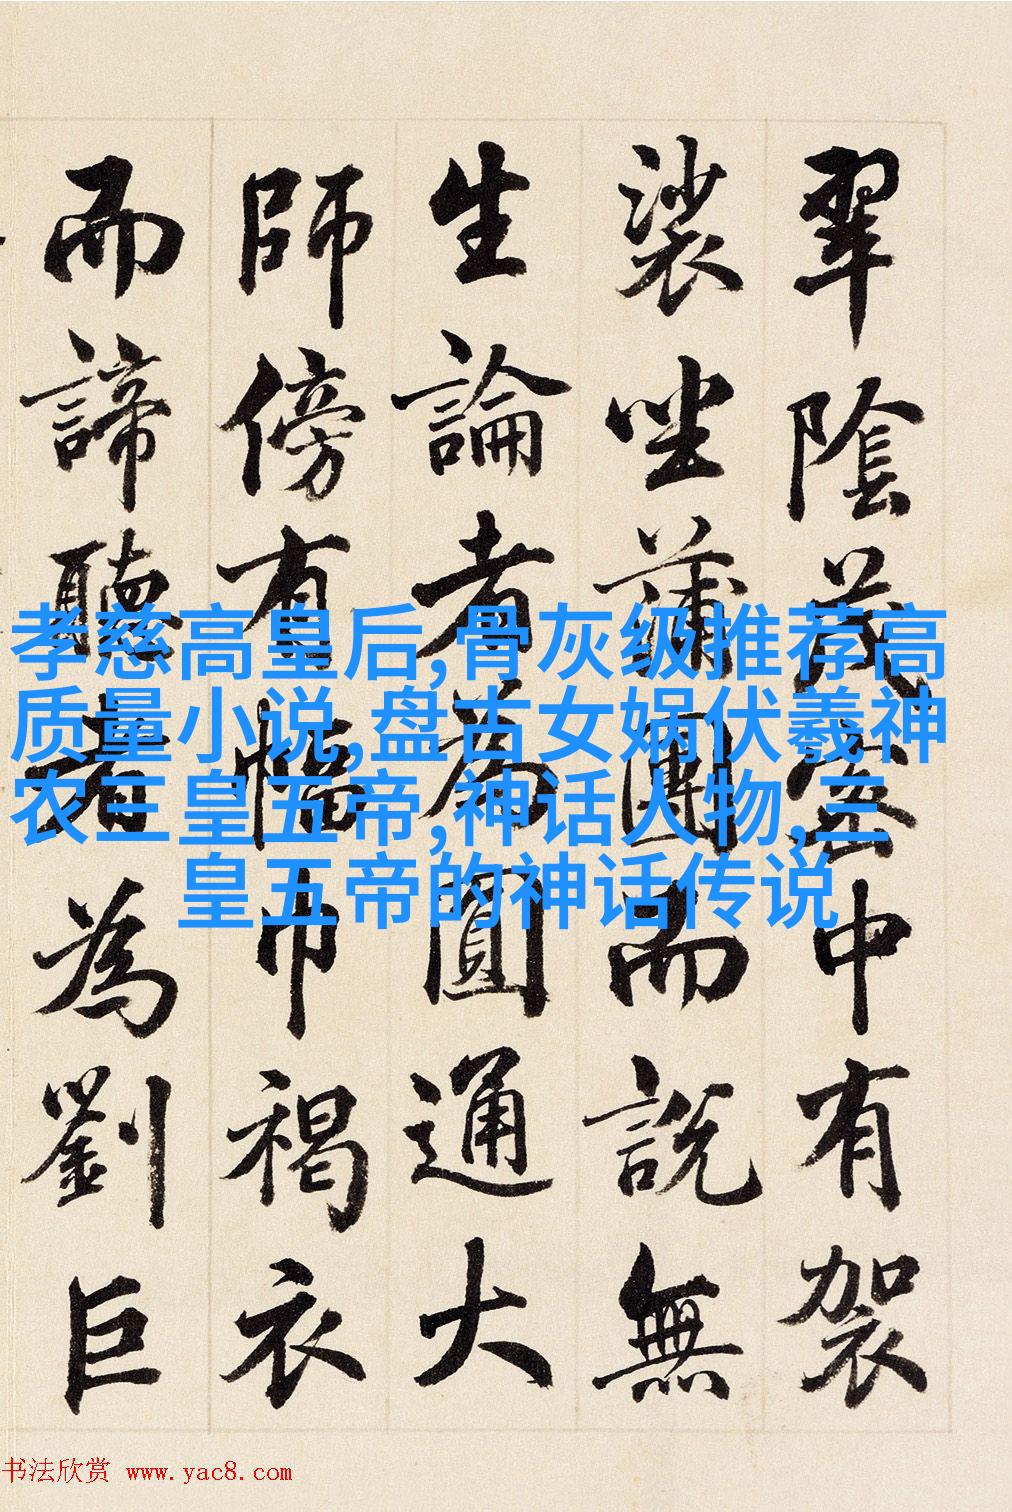 翠陰茂密中有袈
裟坐蒲團而說無
生論者為圓通大
師傍有幅巾褐衣
而諦聽者為劉巨
孝慈高皇后,骨灰级推荐高
质量小说,盘古女娲伏羲神
农三皇五帝,神话人物,三
皇五帝的神话传说
书法欣赏 www.yac8.com